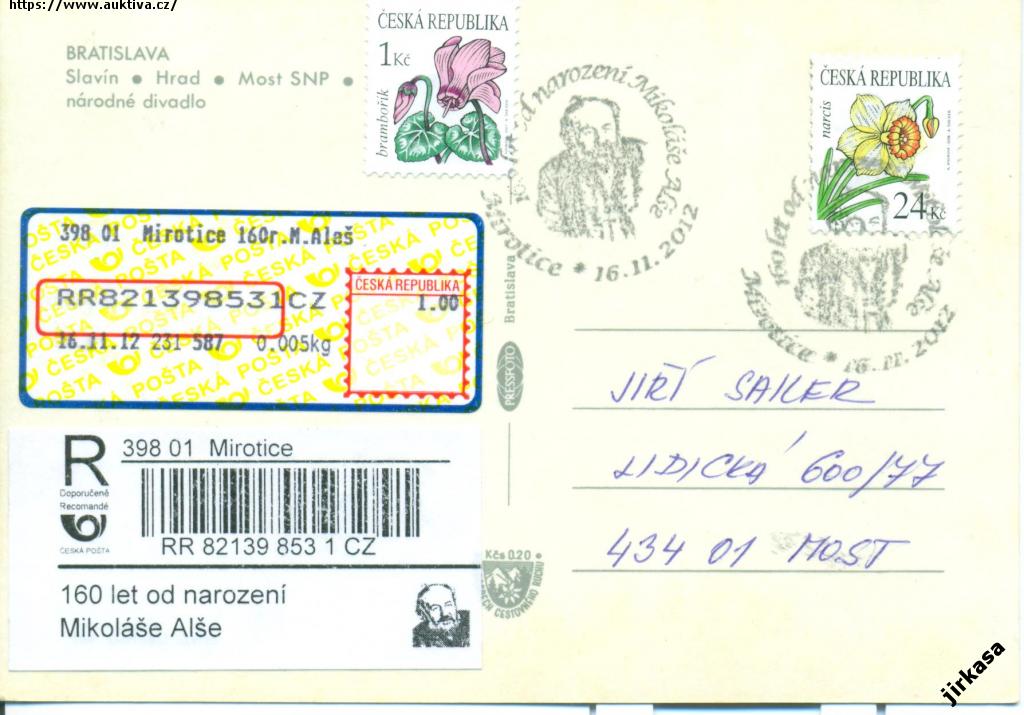 https://www.auktiva.cz/
BRATISLAVA
Slavín ● Hrad ● Most SNP ●
národné divadlo
ČESKÁ REPUBLIKA
1 Kč
brambořík
160 let od narození Mikoláše Alše
Mirotice * 16.11.2012
ČESKÁ REPUBLIKA
narcis
24 Kč
160 let od
Alše
Mirotice * 16.11.2012
398 01 Mirotice 160r.M.Aleš
RR821398531CZ
ČESKÁ REPUBLIKA
1.00
16.11.12 231 587 0.005kg
ČESKÁ POŠTA
Bratislava
PRESSFOTO
JIŘÍ SAILER
LIDICKÁ 600/77
434 01 MOST
R
398 01 Mirotice
Doporučeně
Recomandé
ČESKÁ POŠTA
RR 82139 853 1 CZ
160 let od narození
Mikoláše Alše
Kčs 0.20 ●
CESTOVNÉHO RUCHU
jirkasa